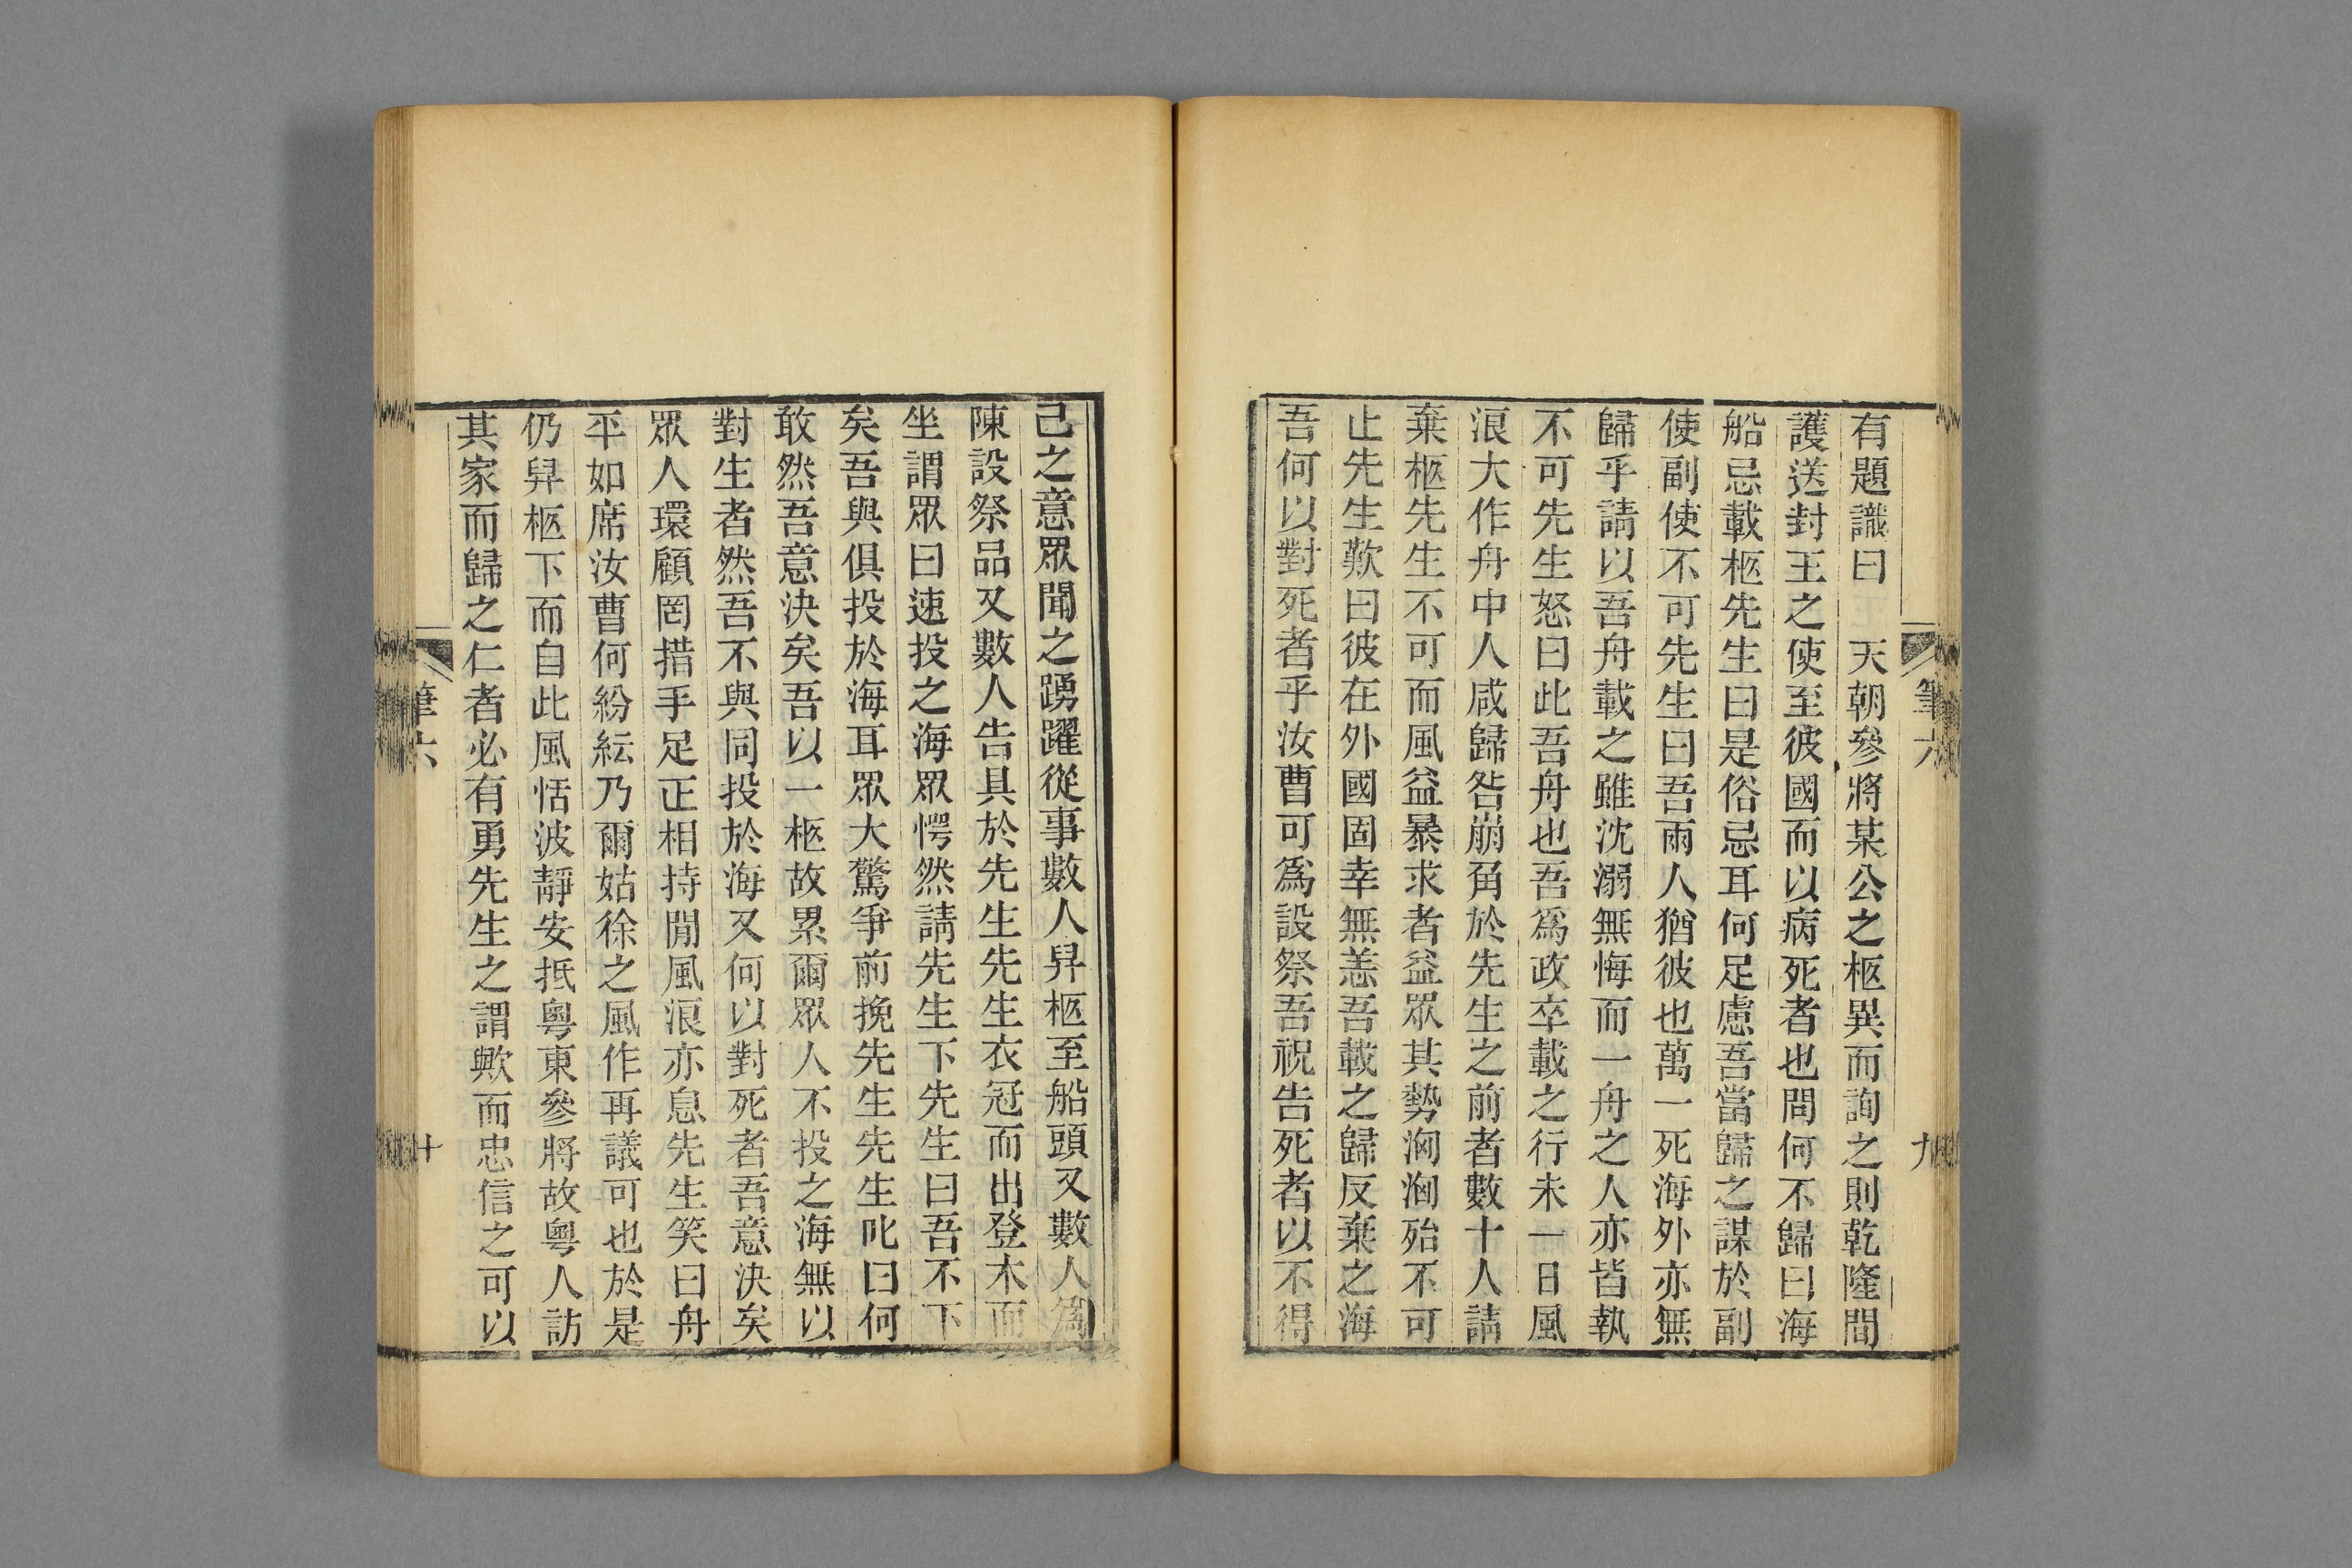 有題識曰　天朝參將某公之柩異而詢之則乾隆間
護送封王之使至彼國而以病死者也問何不歸曰海
船忌載柩先生曰是俗忌耳何足慮吾當歸之謀於副
使副使不可先生曰吾兩人猶彼也萬一死海外亦無
歸乎請以吾舟載之雖沈溺無悔而一舟之人亦皆執
不可先生怒曰此吾舟也吾爲政卒載之行未一日風
浪大作舟中人咸歸咎崩角於先生之前者數十人請
棄柩先生不可而風益暴求者益眾其勢洶洶殆不可
止先生歎曰彼在外國固幸無恙吾載之歸反棄之海
吾何以對死者乎汝曹可爲設祭吾祝告死者以不得
筆六
九
己之意眾聞之踴躍從事數人舁柩至船頭又數人爲
陳設祭品又數人告具於先生先生衣冠而出登木而
坐謂眾曰速投之海眾愕然請先生下先生曰吾不下
矣吾與俱投於海耳眾大驚爭前挽先生先生叱曰何
敢然吾意決矣吾以一柩故累爾眾人不投之海無以
對生者然吾不與同投於海又何以對死者吾意決矣
眾人環顧罔措手足正相持閒風浪亦息先生笑曰舟
平如席汝曹何紛紜乃爾姑徐之風作再議可也於是
仍舁柩下而自此風恬波靜安抵粵東參將故粵人訪
其家而歸之仁者必有勇先生之謂歟而忠信之可以
筆六
十